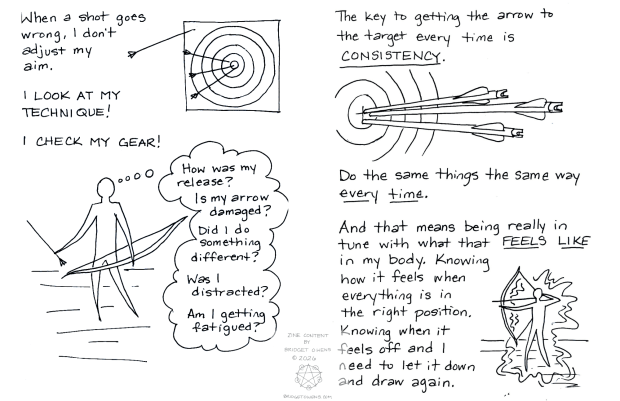 When a shot goes
wrong, I don't
adjust my
aim.
I LOOK AT MY
TECHNIQUE!
I CHECK MY GEAR!
How was my
release?
Is my arrow
damaged?
Did I do
something
different?
Was I
distracted?
Am I getting
fatigued?
ZINE CONTENT
BY
BRIDGET OWENS
© 2026
BRIDGETOWENS.COM
The key to getting the arrow to
the target every time is
CONSISTENCY.
Do the same things the same way
every time.
And that means being really in
tune with what that FEELS LIKE
in my body. Knowing
how it feels when
everything is in
the right position.
Knowing when it
feels off and I
need to let it down
and draw again.